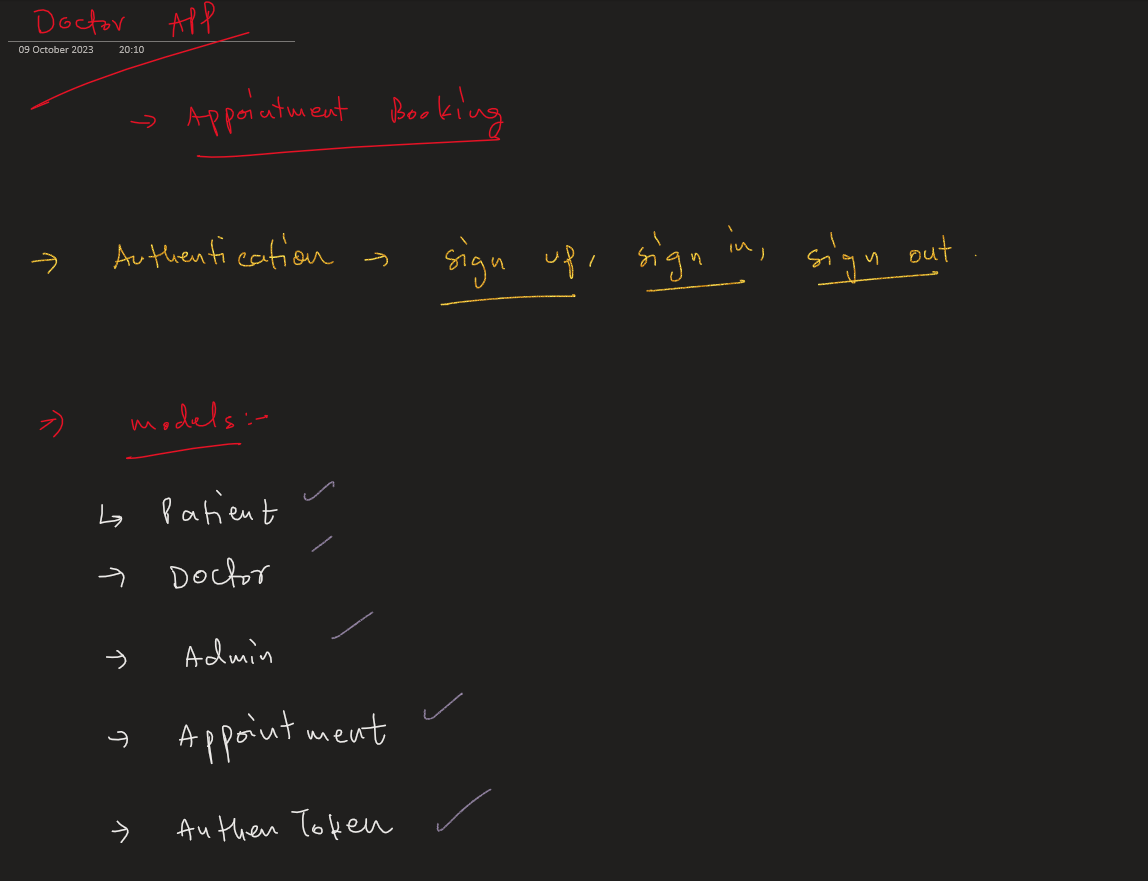 Doctor App
09 October 2023 20:10
→ Appointment Booking
→ Authentication → sign up, sign in, sign out.
⇒ models:-
↳ Patient ✓
→ Doctor
→ Admin
→ Appointment ✓
→ Authen Token ✓